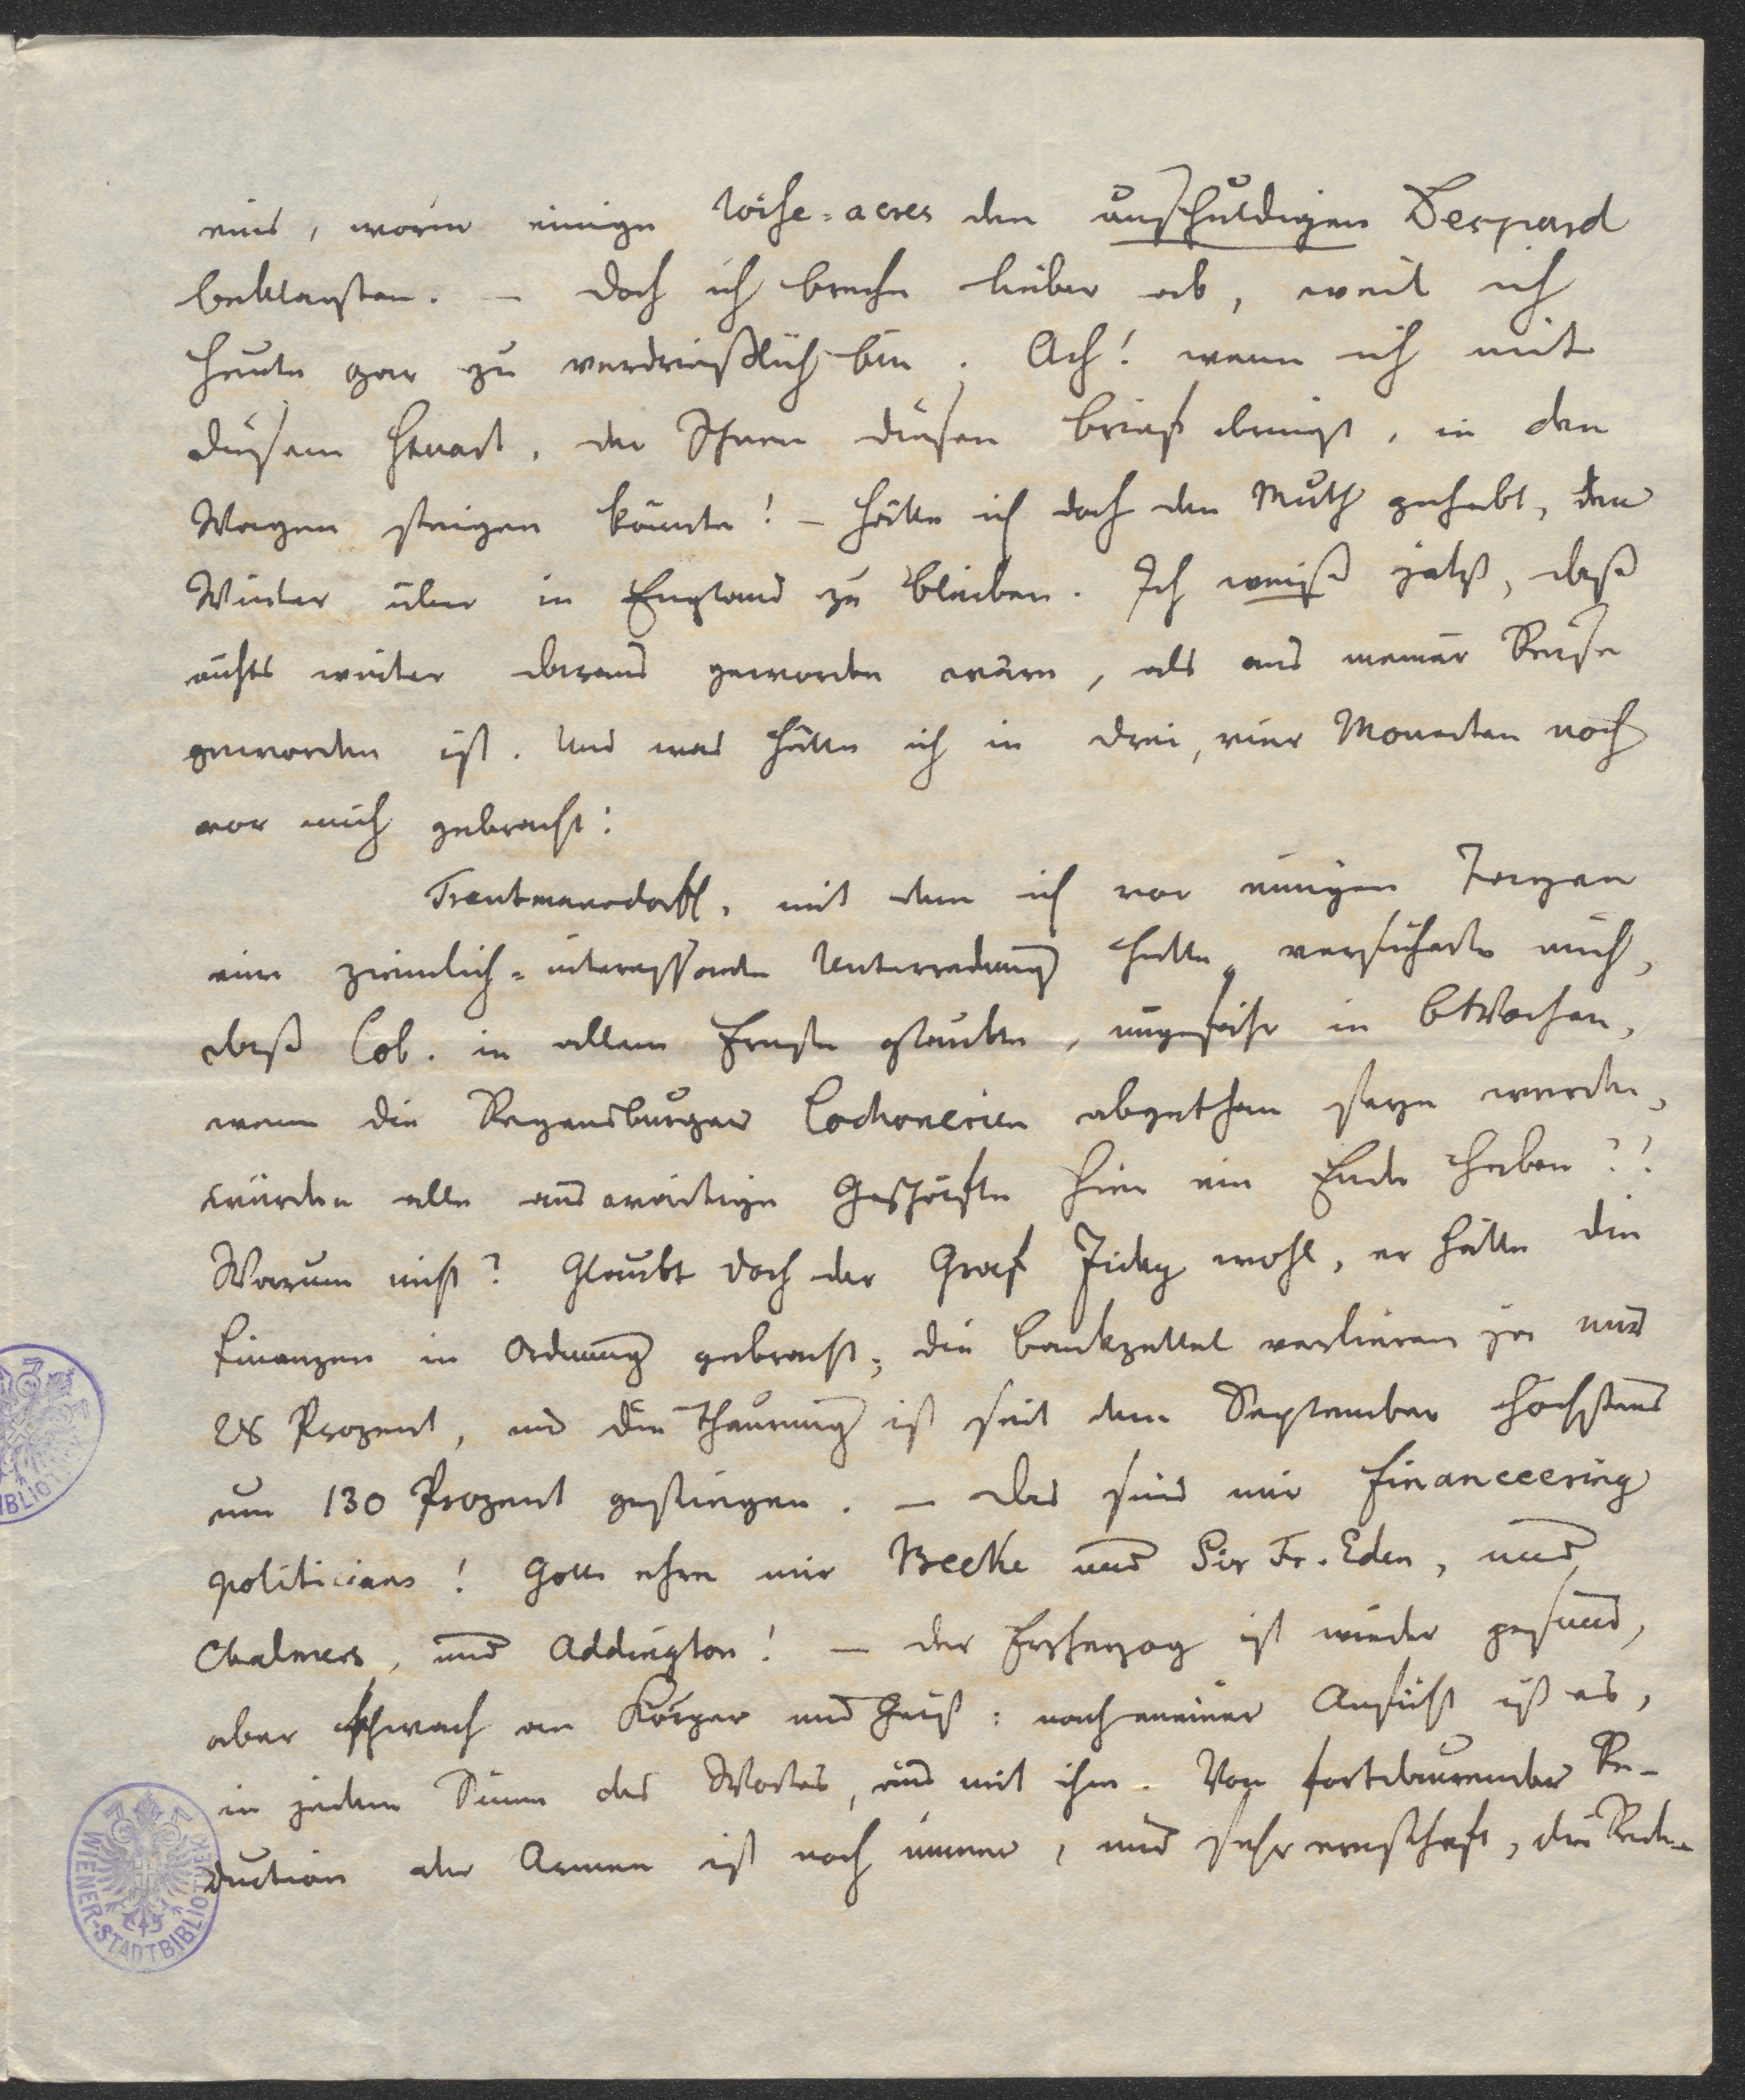 eins, worin einige Wise-acres den unschuldigen Despard
beklagten. – Doch ich breche lieber ab, weil ich
heute gar zu verdrießlich bin. Ach! wenn ich mit
diesem Stuart, der Ihnen diesen Brief bringt, in den
Wagen steigen könnte! – Hätte ich doch den Muth gehabt, den
Winter über in England zu bleiben. Ich weiß jetzt, daß
nichts weiter daraus geworden wäre, als aus meiner Reise
geworden ist. Und was hätte ich in drei, vier Monaten noch
vor mich gebracht!
Trautmansdorff, mit dem ich vor einigen Tagen
eine ziemlich-interessante Unterredung hatte, versicherte mich,
daß Cob. in allem Ernste glaubte, ungefähr in 6 Wochen,
wenn die Regensburger Cochonerien abgethan seyn werden,
würden alle auswärtige Geschäfte hier ein Ende haben??
Warum nicht? Glaubt doch der Graf Zichy wohl, er hätte die
Finanzen in Ordnung gebracht; die Bankzettel verlieren ja nur
28 Prozent, und die Theurung ist seit dem September höchstens
um 130 Prozent gestiegen. – Das sind mir financeering
politicians! Gott ehre mir Beeke und Sir Fr. Eden, und
Chalmers, und Addington! – Der Erzherzog ist wieder gesund,
aber schwach an Körper und Geist: nach meiner Ansicht ist es,
in jedem Sinn des Wortes, aus mit ihm. Von fortdauernder Re-
duction der Armee ist noch immer, und sehr ernsthaft, die Rede
WIENER-STADTBIBLIOTHEK